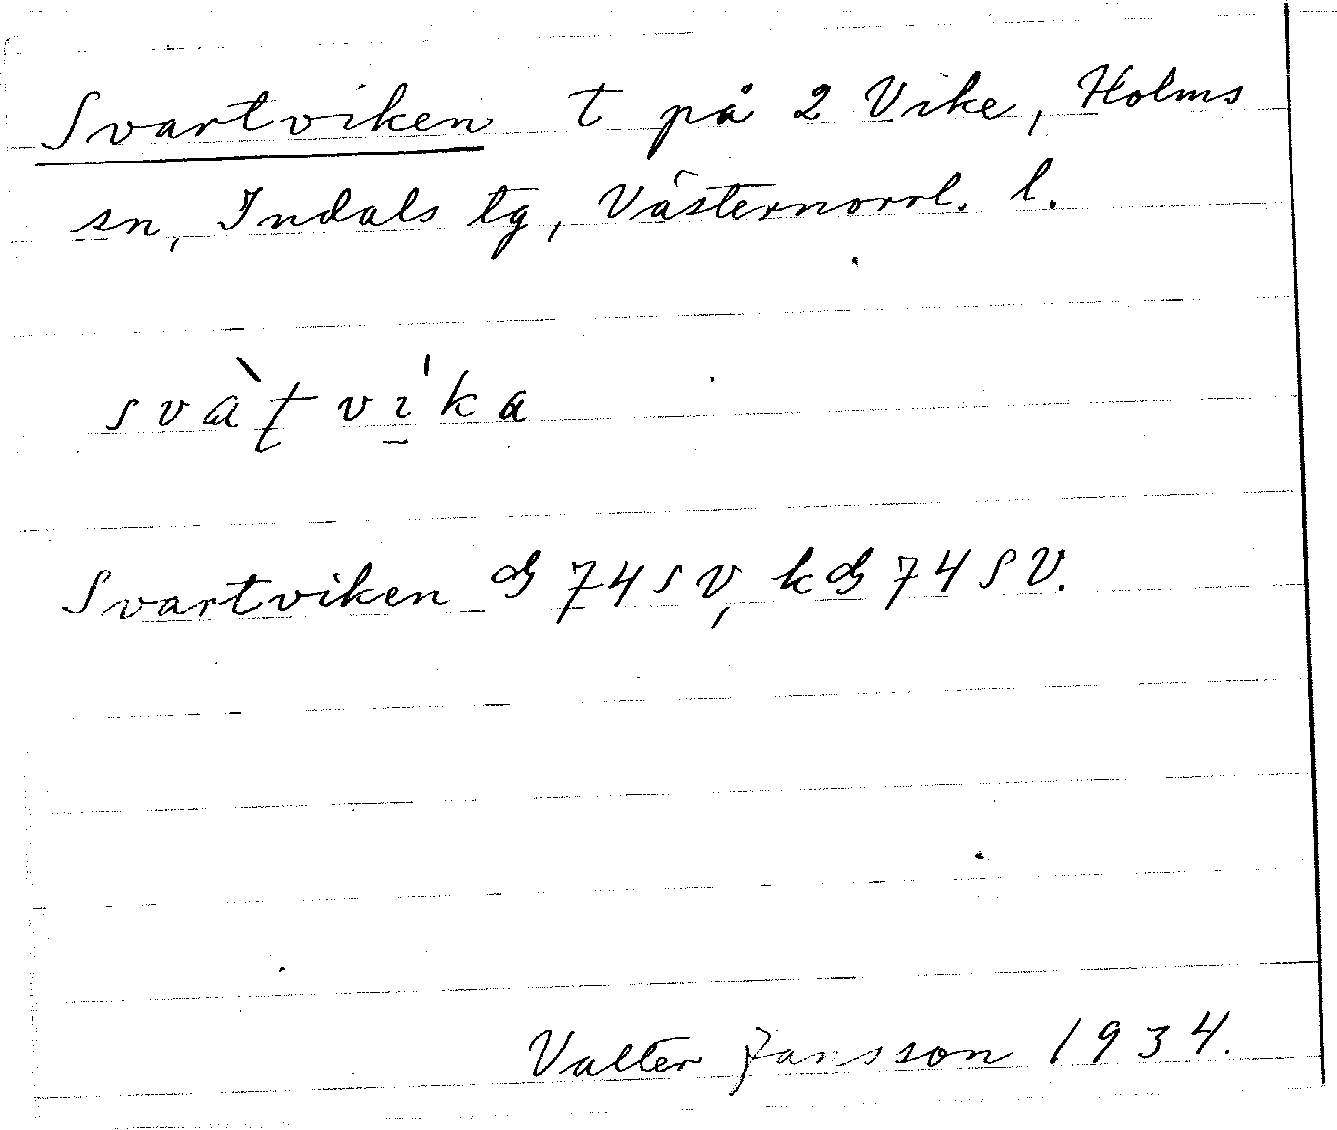 Svartviken t på 2 Vike, Holms
sn, Indals tg, Västernorrl. l.
svàʈvi̠ˈka
Svartviken 74 SV, k 74 SV.
Valter Jansson 1934.